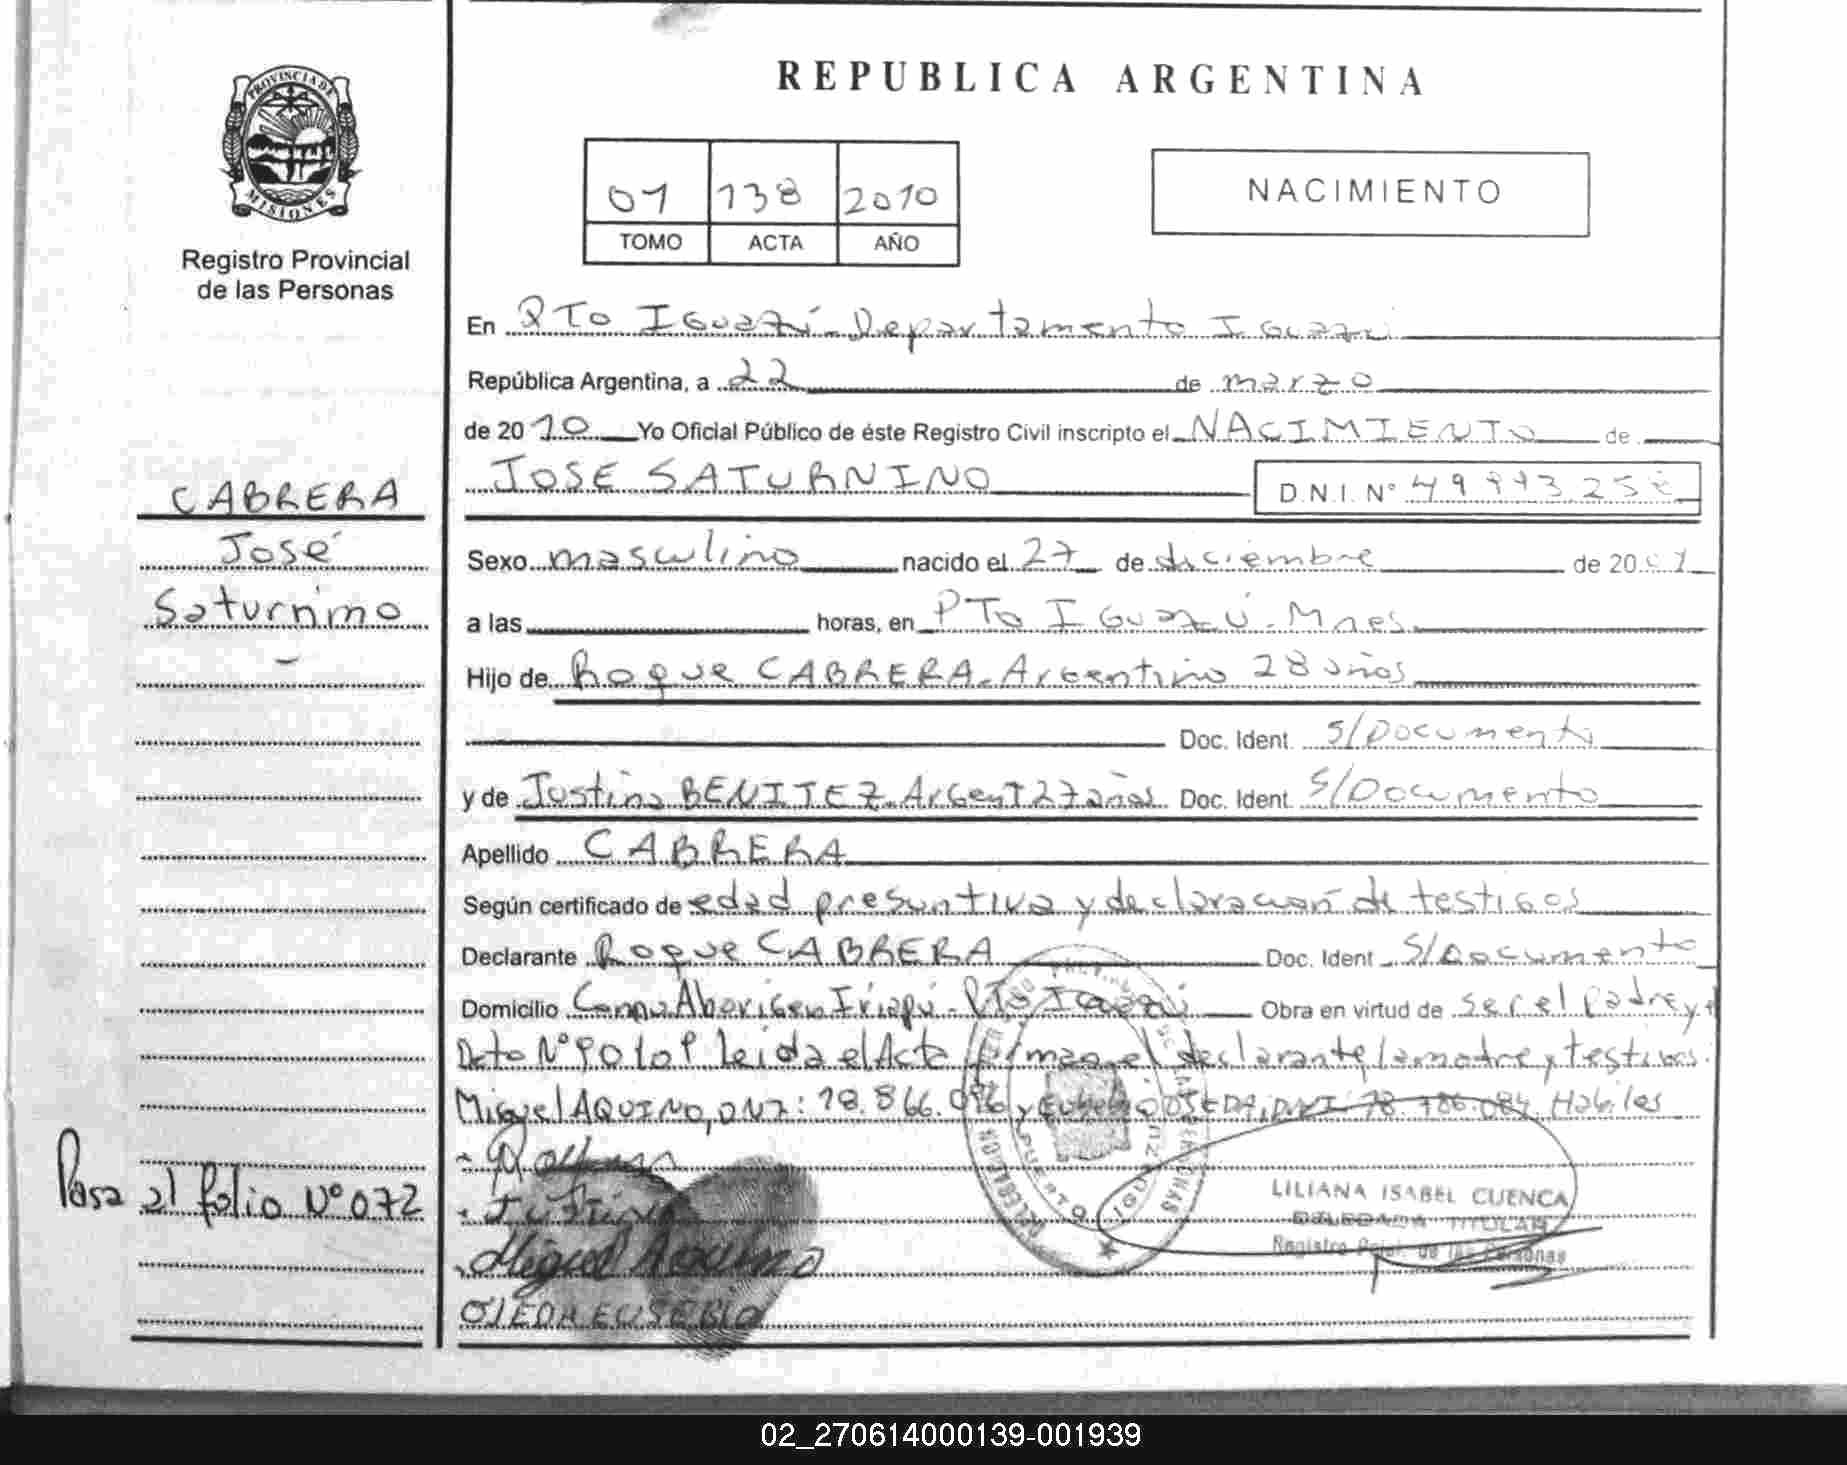 REPUBLICA ARGENTINA
PROVINCIA DE
MISIONES
Registro Provincial
de las Personas
01 138 2010
TOMO ACTA AÑO
NACIMIENTO
En PTo Iguazú - Departamento Iguazú
República Argentina, a 22 de marzo
de 2010 Yo Oficial Público de éste Registro Civil inscripto el NACIMIENTO de
JOSE SATURNINO D.N.I. Nº
CABRERA
José
Saturnino
Sexo masculino nacido el 27 de diciembre de 20
a las horas, en PTo IGuazú - Mnes.
Hijo de Roque CABRERA - Argentino 28 años
Doc. Ident. S/Documento
y de Justina BENITEZ - Argent 27 años Doc. Ident. S/Documento
Apellido CABRERA
Según certificado de edad presuntiva y declaración de testigos
Declarante Roque CABRERA Doc. Ident S/Documento
Domicilio Comu Aborigen Iriapú - PTo Iguazú Obra en virtud de ser el padre y
Dcto Nº 90/09 leida el Acta firman el declarante, la madre y testigos.
Miguel AQUINO, DNI: 18.866.096 y Eusebio OJEDA, DNI 18.786.084 Hábiles
Pasa al folio Nº 072
Justina
Miguel Aquino
OJEDA EUSEBIO
LILIANA ISABEL CUENCA
DELEGADA TITULAR
Registro Pcial. de las Personas
02_270614000139-001939